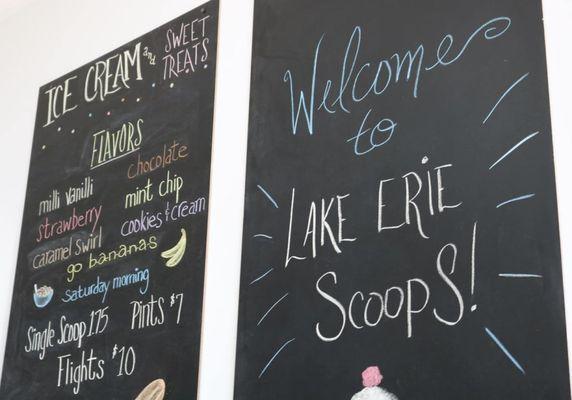 ICE CREAM and SWEET TREATS
FLAVORS
milli vanilli
chocolate
strawberry
mint chip
caramel swirl
cookies & cream
go bananas
Saturday morning
Single Scoop 1.75
Pints $7
Flights $10
Welcome
to
LAKE ERIE
Scoops!